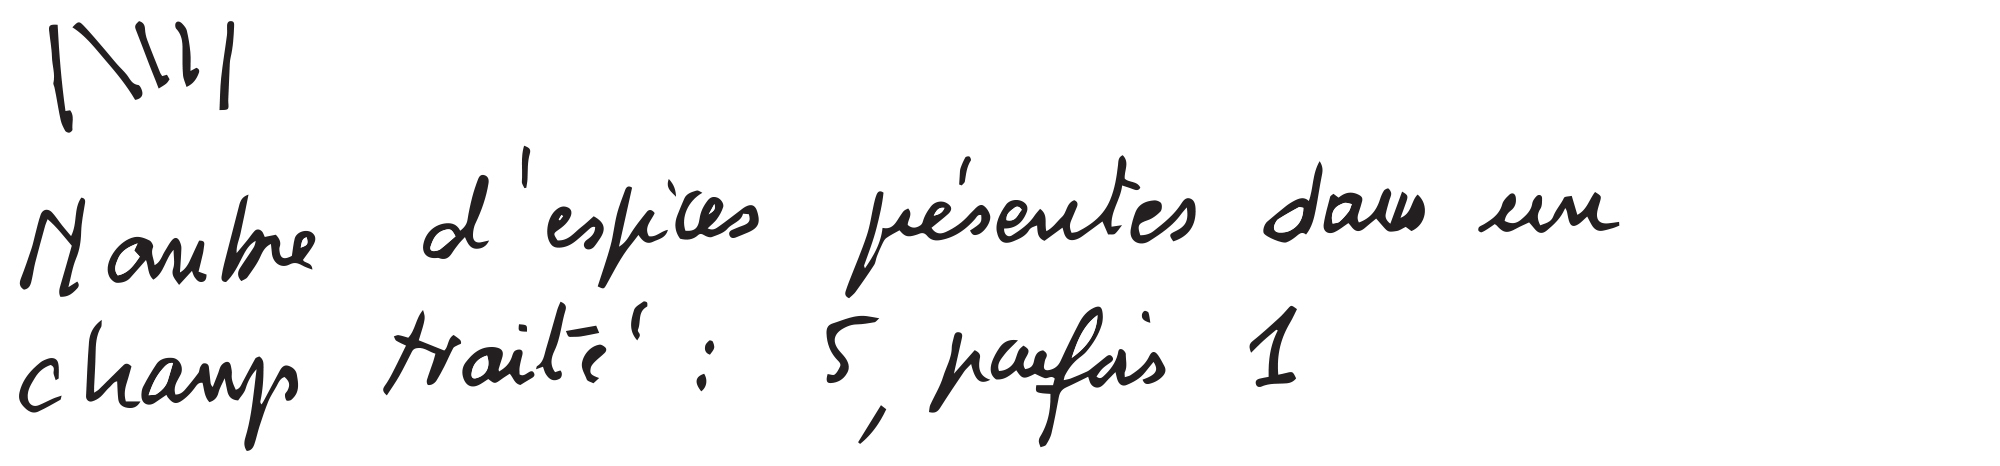 Nombre d'espices présentes dans un
champ traité : 5, parfois 1